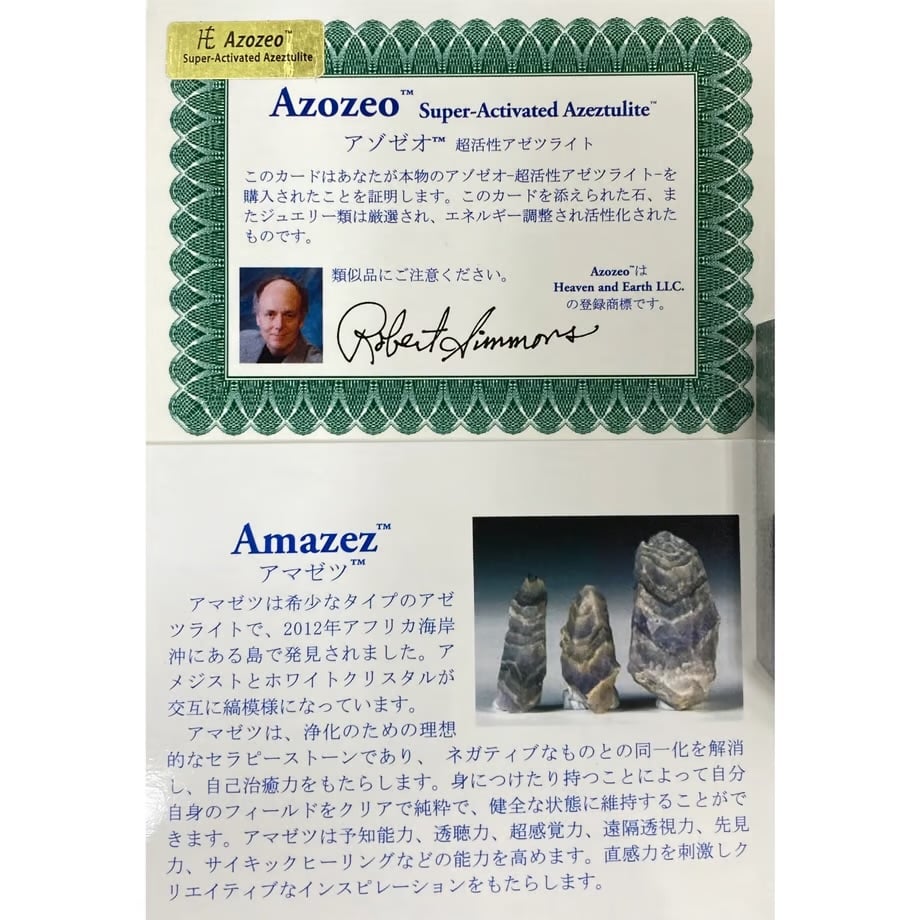 Azozeo™
Super-Activated Azeztulite
Azozeo™ Super-Activated Azeztulite™
アゾゼオ™ 超活性アゼツライト
このカードはあなたが本物のアゾゼオ-超活性アゼツライト-を
購入されたことを証明します。このカードを添えられた石、ま
たジュエリー類は厳選され、エネルギー調整され活性化された
ものです。
類似品にご注意ください。
Azozeo™は
Heaven and Earth LLC.
の登録商標です。
Robert Simmons
Amazez™
アマゼツ™
アマゼツは希少なタイプのアゼ
ツライトで、2012年アフリカ海岸
沖にある島で発見されました。ア
メジストとホワイトクリスタルが
交互に縞模様になっています。
アマゼツは、浄化のための理想
的なセラピーストーンであり、 ネガティブなものとの同一化を解消
し、自己治癒力をもたらします。身につけたり持つことによって自分
自身のフィールドをクリアで純粋で、健全な状態に維持することがで
きます。アマゼツは予知能力、透聴力、超感覚力、遠隔透視力、先見
力、サイキックヒーリングなどの能力を高めます。直感力を刺激しク
リエイティブなインスピレーションをもたらします。